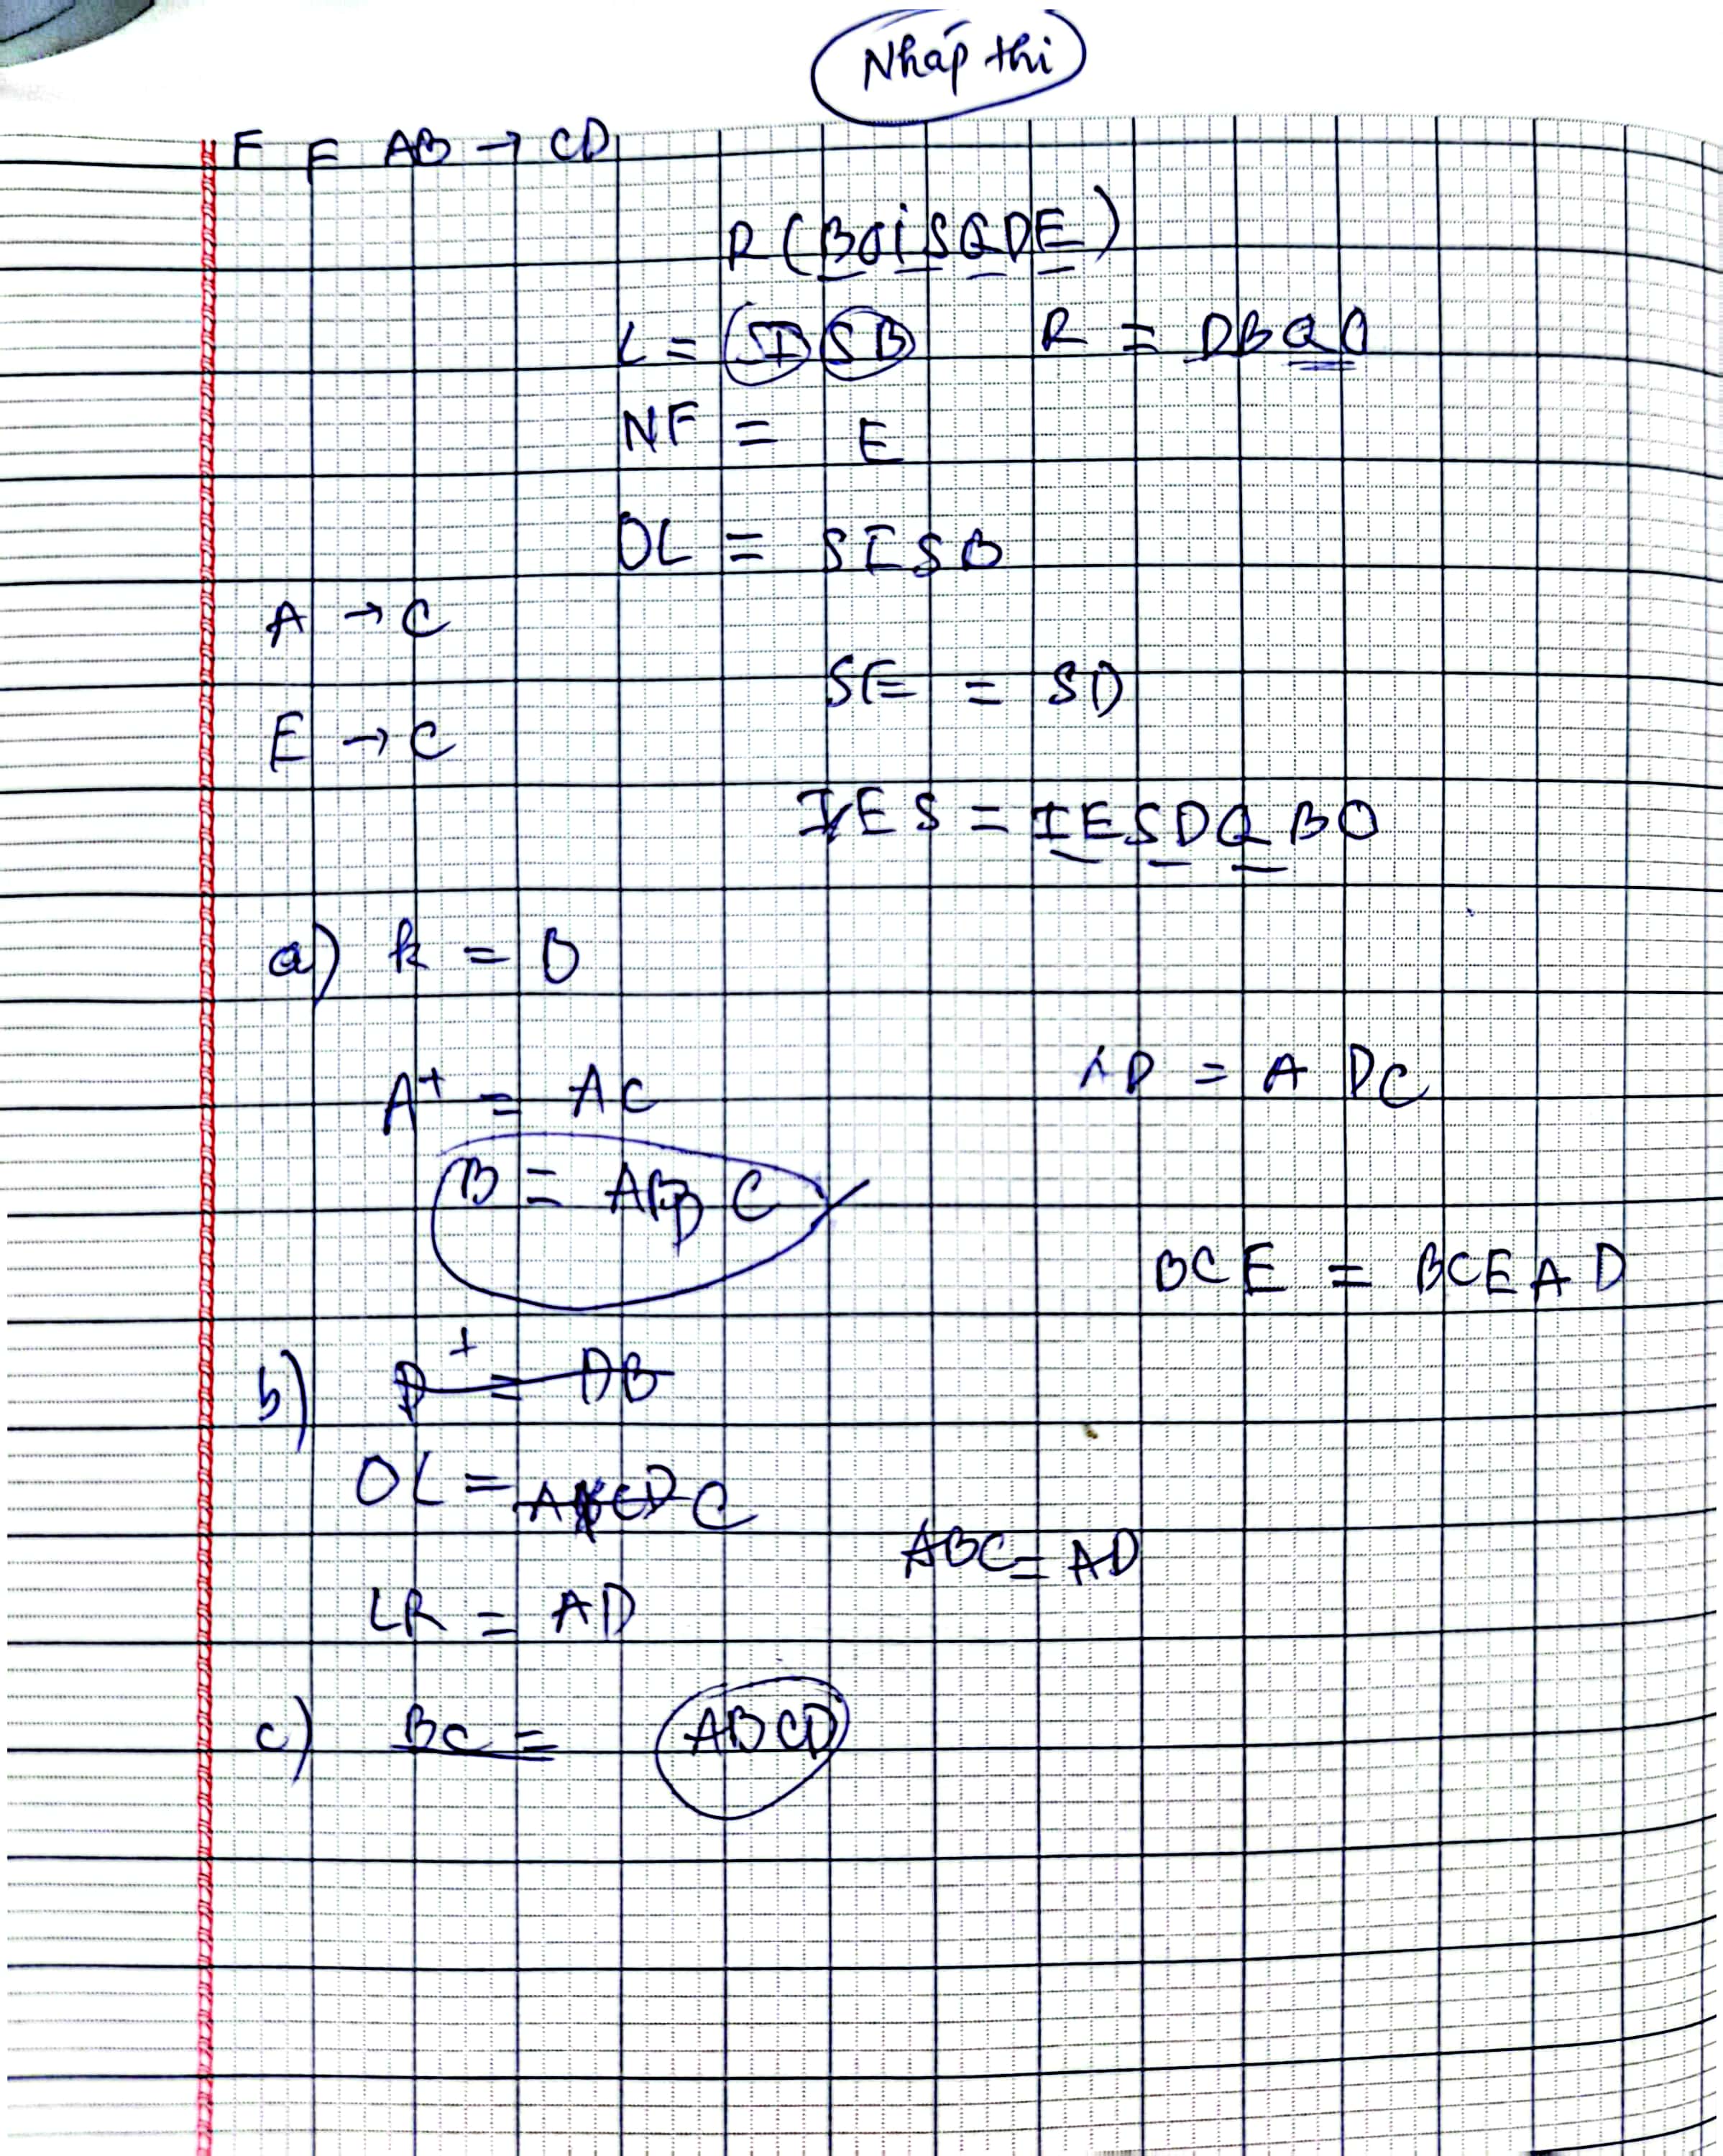 Nháp thi
F F AB → CD
R (BOiSQDE)
L = SI SB R = DBQO
NF = E
OL = SISB
A → C
SE = SD
E → C
IES = IESDQBO
a) k = B
A+ = AC
AD = A DC
B = ABD C
BCE = BCEAD
b) D+ = DB
OL = C
ABC = AD
LR = AD
c) BC = ABCD